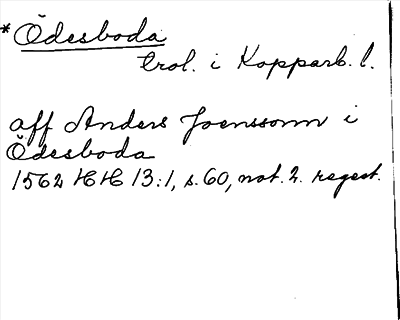 *Ödesboda
trol. i Kopparb. l.
aff Anders Joensson i
Ödesboda
1562 HH 13:1, s. 60, not. 2. regest.